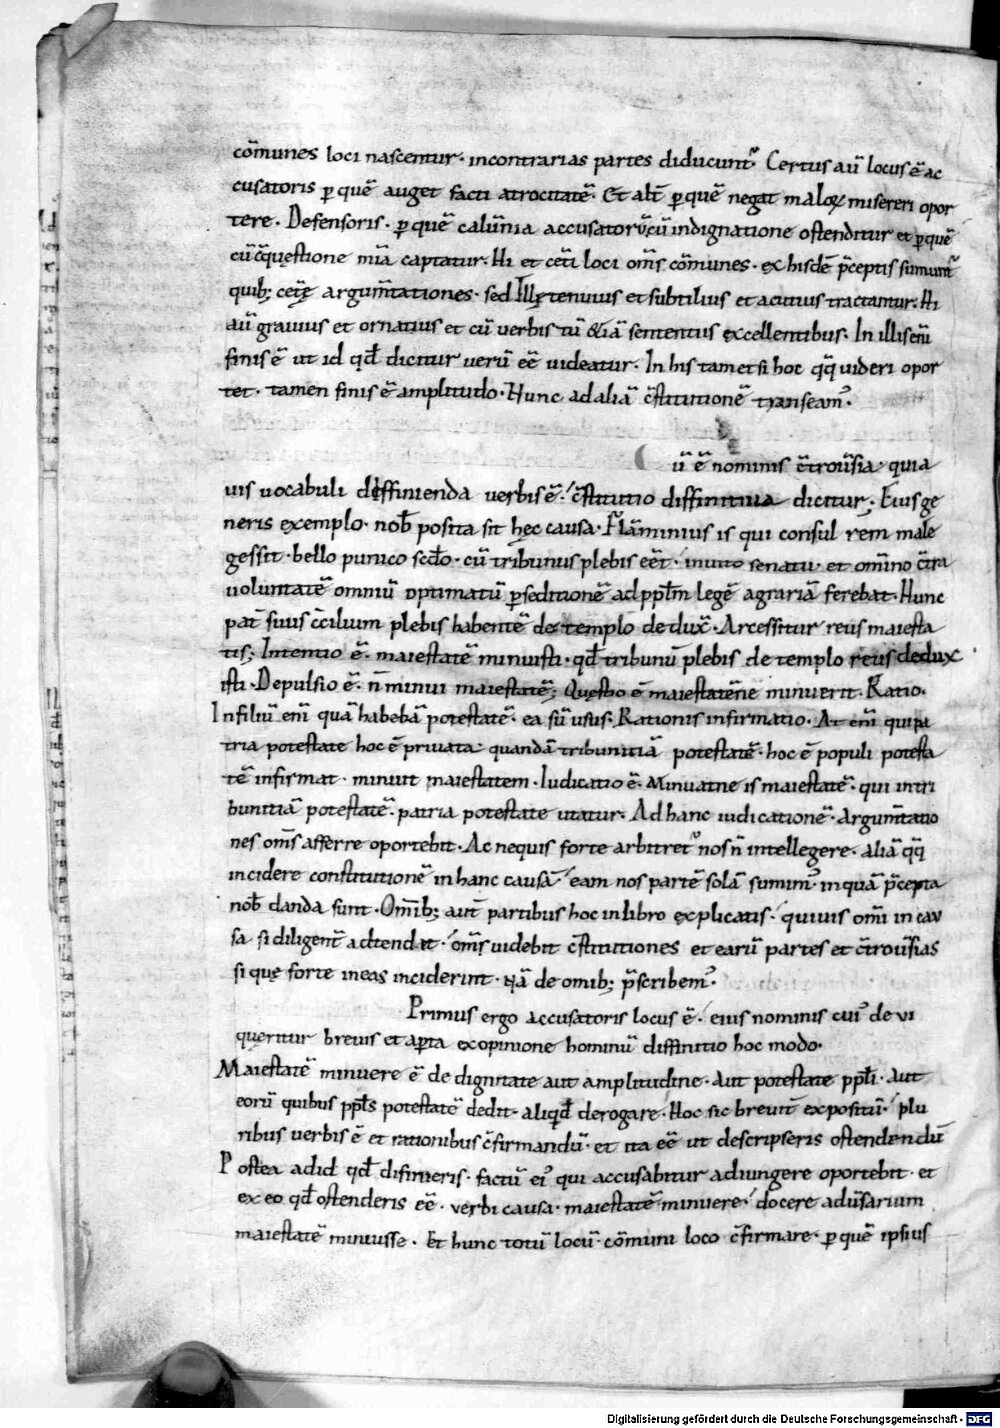 cōmunes loci nascentur· incontrarias partes diducunt᷑ Certus aū locus ē ac
cusatoris ꝑ quē auget facti atrocitatē· Et alt̄ ꝑ quē negat maloꝝ misereri opor
tere· Defensoris· ꝑ quē calūnia accusatorū cū indignatione ostenditur et ꝑ quē
cū q̄ęstione mīa captatur· Hi et cet̄i loci om̄s cōmunes· ex hisdē p̄ceptis sumunt᷑
quib; cetę argum̄tationes· sed Illę tenuius et subtilius et acutius tractantur· Hi
aū grauius et ornatius et cū verbis tū &iā sententiis excellentibus· In illis enī
finis ē ut id qđ dicitur verū eē videatur· In his tametsi hoc q̄q videri opor
tet· tamen finis ē amplitudo· Nunc ad aliā c̄stitutionē transeam᷒·
ū ē nominis c̄trou̅sia· quia
uis vocabuli diffinienda verbis ē· c̄stitutio diffinitiua dicitur; Eius ge
neris exemplo· nob̄ posita sit hęc causa· Flāminius is qui consul rem male
gessit· bello punico scđo· cū tribunus plebis eēt· inuito senatu· et om̄ino c̄tra
voluntatē omniū optimatū ꝑ seditionē ad ppl̄m legē agrariā ferebat· Hunc
pat̄ suus c̄cilium plebis habentē de templo deduxˉ· Arcessitur reus maiesta
tis; Intentio ē· maiestatē minuisti· qđ tribunū plebis de templo reus dedux
isti· Depulsio ē· n̄ minui maiestatē; Quęstio ē maiestatēne minuerit· Ratio·
In filiū enī quā habebā potestatē· ea sū usus· Rationis infirmatio· At enī qui pa
tria potestate hoc ē privata quandā tribunitiā potestatē· hoc ē populi potesta
tē infirmat· minuit maiestatem· Iudicatio ē· Minuatne is maiestatē· qui in tri
bunitiā potestatē· patria potestate utatur· Ad hanc iudicationē· argum̄tatio
nes om̄s afferre oportebit· Ac nequis forte arbitret᷑ nos n̄ intellegere· aliā q̄q
incidere constitutionē in hanc causā· eam nos partē solā sumim᷒ in quā p̄cepta
nob̄ danda sunt· Om̄ib; aut̄ partibus hoc in libro explicatis· quiuis om̄i in cau
sa si diligent̄ adtendat· om̄s videbit c̄stitutiones et earū partes et c̄trou̅sias
si quę forte in eas inciderint· nā de omib; p̄scribem᷒·
Primus ergo accusatoris locus ē· eius nominis cui᷒ de vi
queritur brevis et aꝑta ex opinione hominū diffinitio hoc modo·
Maiestatē minuere ē de dignitate aut amplitudine· Aut potestate ppl̄i· Aut
eorū quibus ppl̄s potestatē dedit· aliqđ derogare· Hoc sic breuit̄ expositū· plu
ribus verbis ē et rationibus c̄firmandū· et ita eē ut descripseris ostendendū
Postea ad id qđ difinieris· factū ei᷒ qui accusabitur adiungere oportebit· et
ex eo qđ ostenderis eē· verbi causa· maiestatē minuere· docere adu̅sarium
maiestatē minuisse· Et hunc totū locū· cōmuni loco c̄firmare· ꝑ quē ipsius
Digitalisierung gefördert durch die Deutsche Forschungsgemeinschaft - DFG